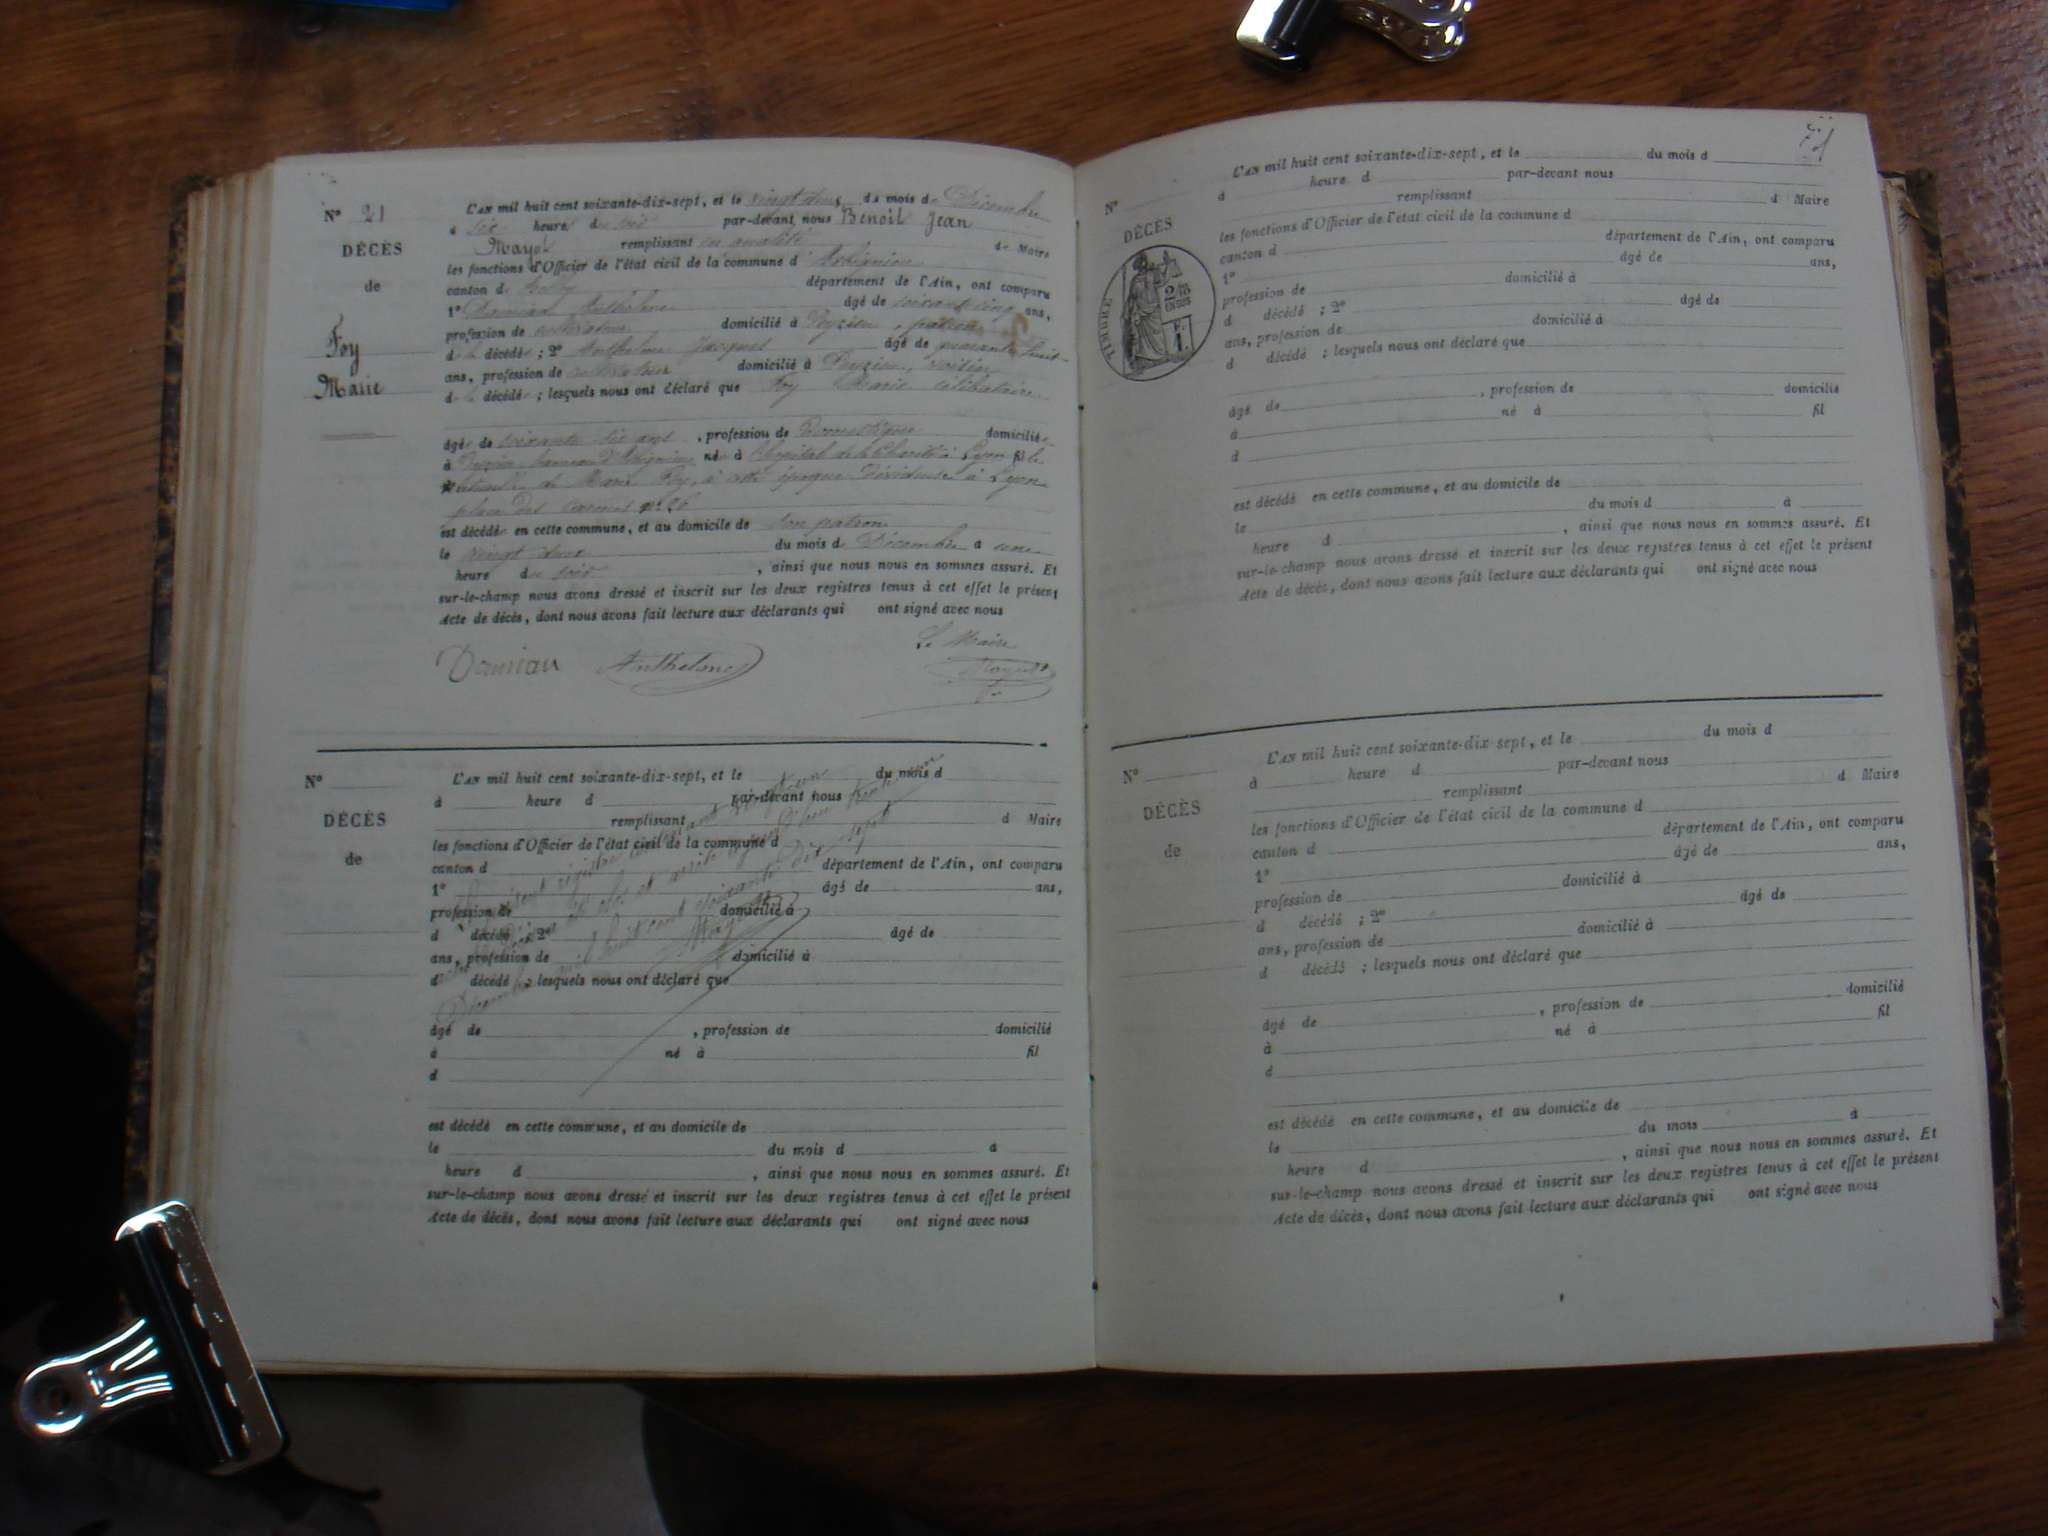 N° 21
DÉCÈS
de
Foy
Marie
L'AN mil huit cent soixante-dix-sept, et le vingt deux du mois de Décembre
à six heures du soir par-devant nous Benoit Jean
Mayet remplissant en qualité de Maire
les fonctions d'Officier de l'état civil de la commune d' Arbignieu
canton de Belley département de l'Ain, ont comparu
1° Damian Anthelme âgé de soixante cinq ans,
profession de cultivateur domicilié à Peyzieu, patron
de la décédée ; 2° Anthelme Jacques âgé de quarante huit
ans, profession de cultivateur domicilié à Peyzieu, voisin
de la décédée ; lesquels nous ont déclaré que Foy Marie célibataire
âgée de soixante dix ans, profession de Domestique domiciliée
à Peyzieu hameau d'Arbignieu née à l'hôpital de la Charité à Lyon fille
naturelle de Marie Foy, à cette époque Dévideuse à Lyon
place des Carmes n° 26
est décédée en cette commune, et au domicile de son patron
le vingt deux du mois de Décembre à une
heure du soir, ainsi que nous nous en sommes assuré. Et
sur-le-champ nous avons dressé et inscrit sur les deux registres tenus à cet effet le présent
Acte de décès, dont nous avons fait lecture aux déclarants qui ont signé avec nous
Le Maire
Damian Anthelme Mayet
N°
DÉCÈS
de
L'AN mil huit cent soixante-dix-sept, et le du mois d
à heure d par-devant nous
remplissant d Maire
les fonctions d'Officier de l'état civil de la commune d
canton d département de l'Ain, ont comparu
1° âgé de ans,
profession de domicilié à
d décédé ; 2° âgé de
ans, profession de domicilié à
d décédé ; lesquels nous ont déclaré que
âgé de , profession de domicilié
à né à fil
d
est décédé en cette commune, et au domicile de
le du mois d à
heure d , ainsi que nous nous en sommes assuré. Et
sur-le-champ nous avons dressé et inscrit sur les deux registres tenus à cet effet le présent
Acte de décès, dont nous avons fait lecture aux déclarants qui ont signé avec nous
présent registre
clos et arrêté
Décembre mil huit cent soixante dix sept
Mayet
N°
DÉCÈS
TIMBRE
L'AN mil huit cent soixante-dix-sept, et le du mois d
à heure d par-devant nous
remplissant d Maire
les fonctions d'Officier de l'état civil de la commune d
canton d département de l'Ain, ont comparu
1° âgé de ans,
profession de domicilié à
d décédé ; 2° âgé de
ans, profession de domicilié à
d décédé ; lesquels nous ont déclaré que
âgé de , profession de domicilié
à né à fil
d
est décédé en cette commune, et au domicile de
le du mois d à
heure d , ainsi que nous nous en sommes assuré. Et
sur-le-champ nous avons dressé et inscrit sur les deux registres tenus à cet effet le présent
Acte de décès, dont nous avons fait lecture aux déclarants qui ont signé avec nous
N°
DÉCÈS
de
L'AN mil huit cent soixante-dix-sept, et le du mois d
à heure d par-devant nous
remplissant d Maire
les fonctions d'Officier de l'état civil de la commune d
canton d département de l'Ain, ont comparu
1° âgé de ans,
profession de domicilié à
d décédé ; 2° âgé de
ans, profession de domicilié à
d décédé ; lesquels nous ont déclaré que
âgé de , profession de domicilié
à né à fil
d
est décédé en cette commune, et au domicile de
le du mois à
heure d , ainsi que nous nous en sommes assuré. Et
sur-le-champ nous avons dressé et inscrit sur les deux registres tenus à cet effet le présent
Acte de décès, dont nous avons fait lecture aux déclarants qui ont signé avec nous